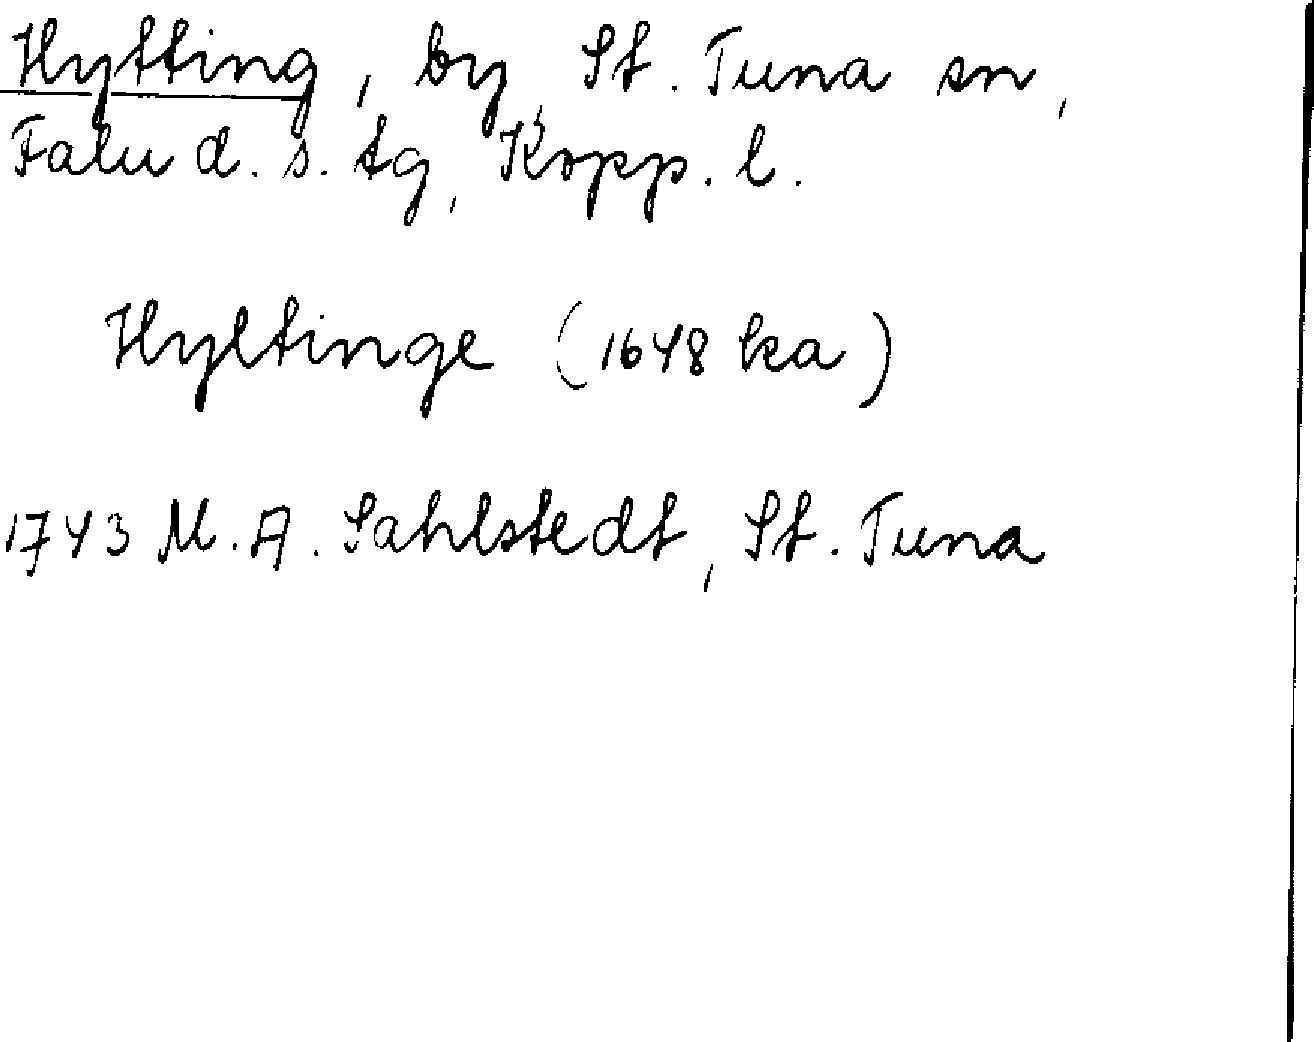 Hytting, by, St. Tuna sn,
Falu d. s. tg, Kopp. l.
Hyltinge (1648 ka)
1743 M. A. Sahlstedt, St. Tuna